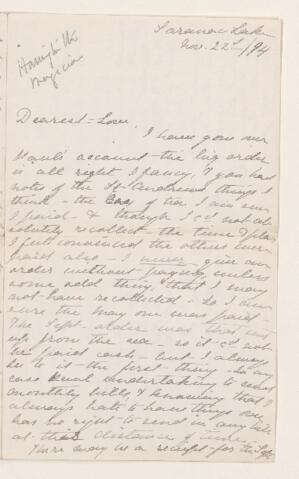 Saranac Lake
Nov. 22d/94
Dearest = Love,
I have gone over
account - the big order
is all right I fancy, if you had
notes of the St. Andrews things I
think - the of tea I am sure
I paid - & though I cd not abs
olutely recollect the time & place
I felt convinced the others were
paid also - I never give an
order without paying, unless
some odd thing, that I may
not have recollected - So I am
sure the May one was paid -
The Sept. order was that
from the - so it cd not
be paid cash - but I always
to it the first thing - in any
case undertaking to send
monthly bills & knowing that I
always hate to have things over
has no right to send in any bill
at this distance of time -
There may be a receipt for the